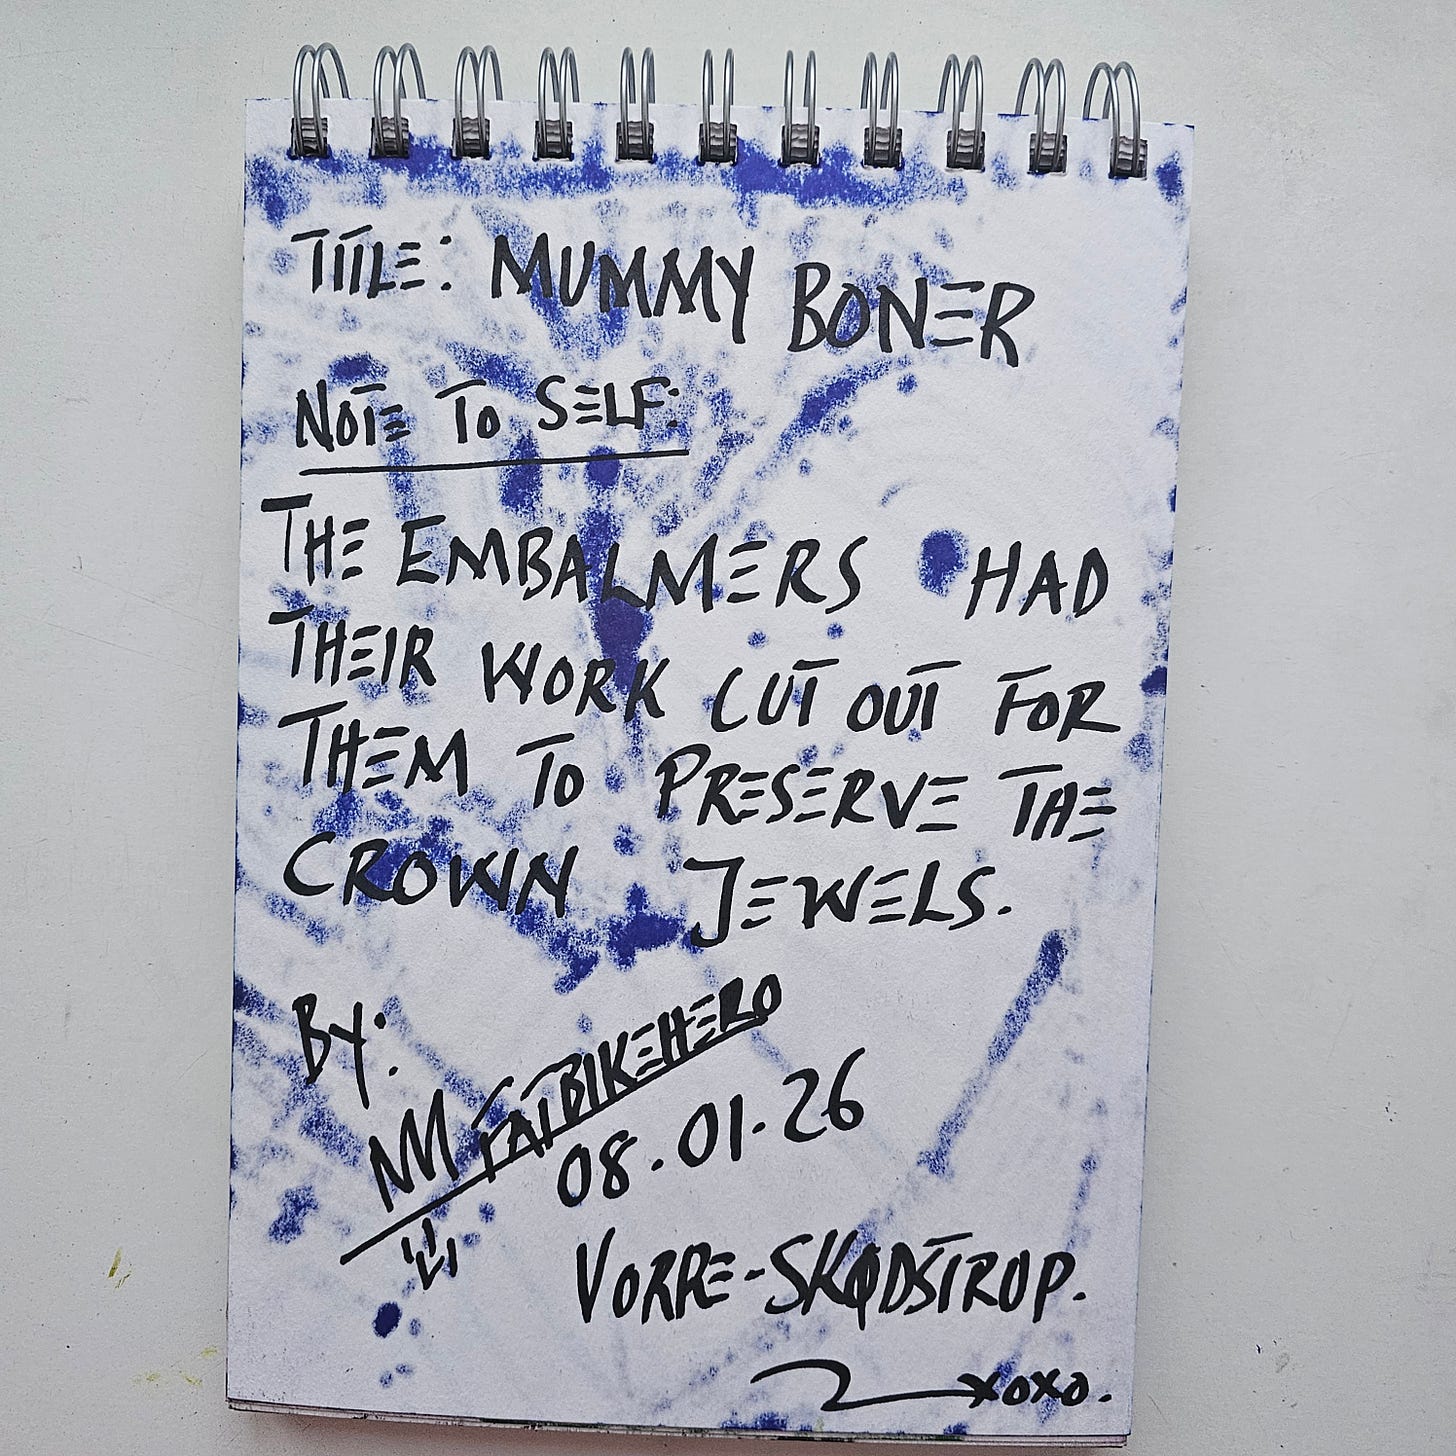 TITLE: MUMMY BONER
NOTE TO SELF:
THE EMBALMERS HAD
THEIR WORK CUT OUT FOR
THEM TO PRESERVE THE
CROWN JEWELS.
BY:
FATBIKEHERO
08.01.26
VORRE-SKØDSTRUP.
xoxo.